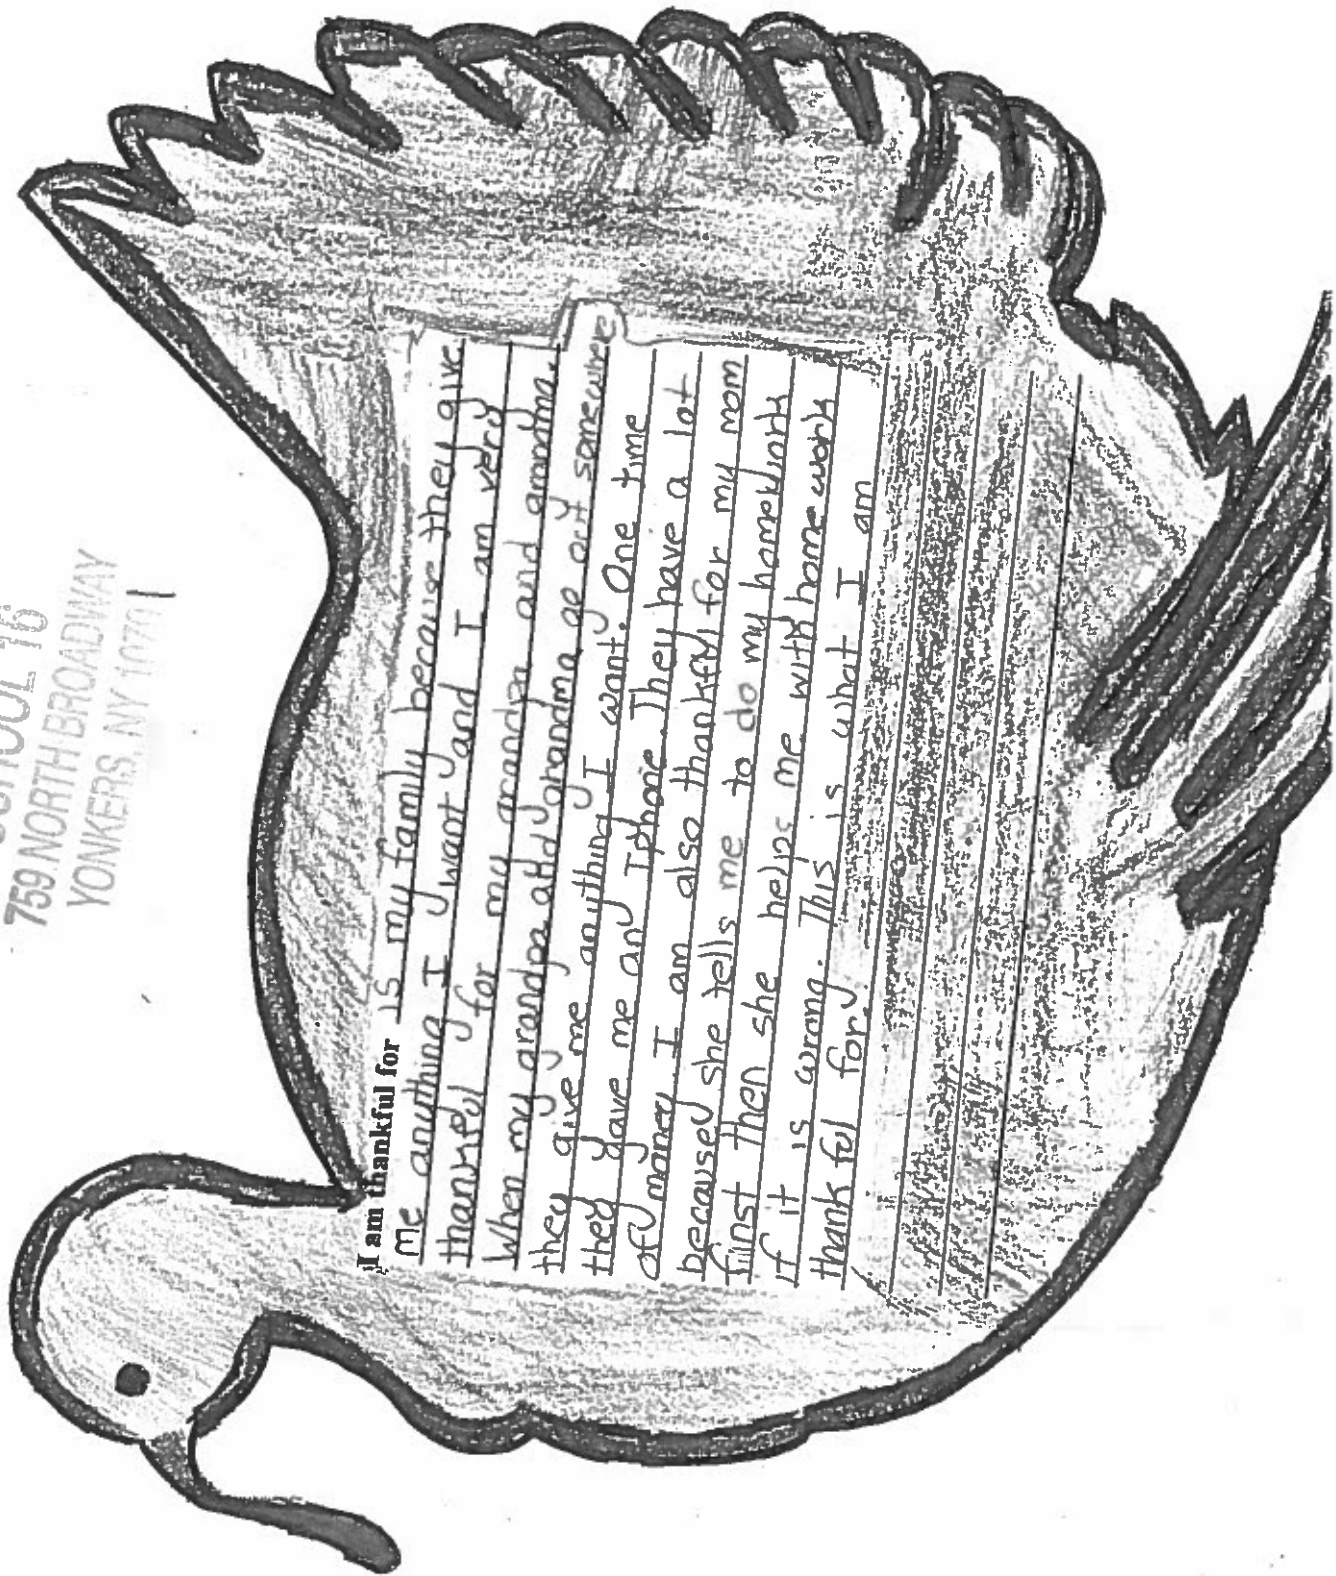 SCHOOL 16
759 NORTH BROADWAY
YONKERS, NY 10701
I am thankful for is my family because they give
me anything I want and I am very
thankful for my grandpa and amndma.
When my grandpa and grandma go out somewhre
they give me anything I want. One time
they gave me an Iphone. They have a lot
of money I am also thankful for my mom
because she tells me to do my homework
first then she helps me with home work
if it is wrong. This is what I am
thankful for.